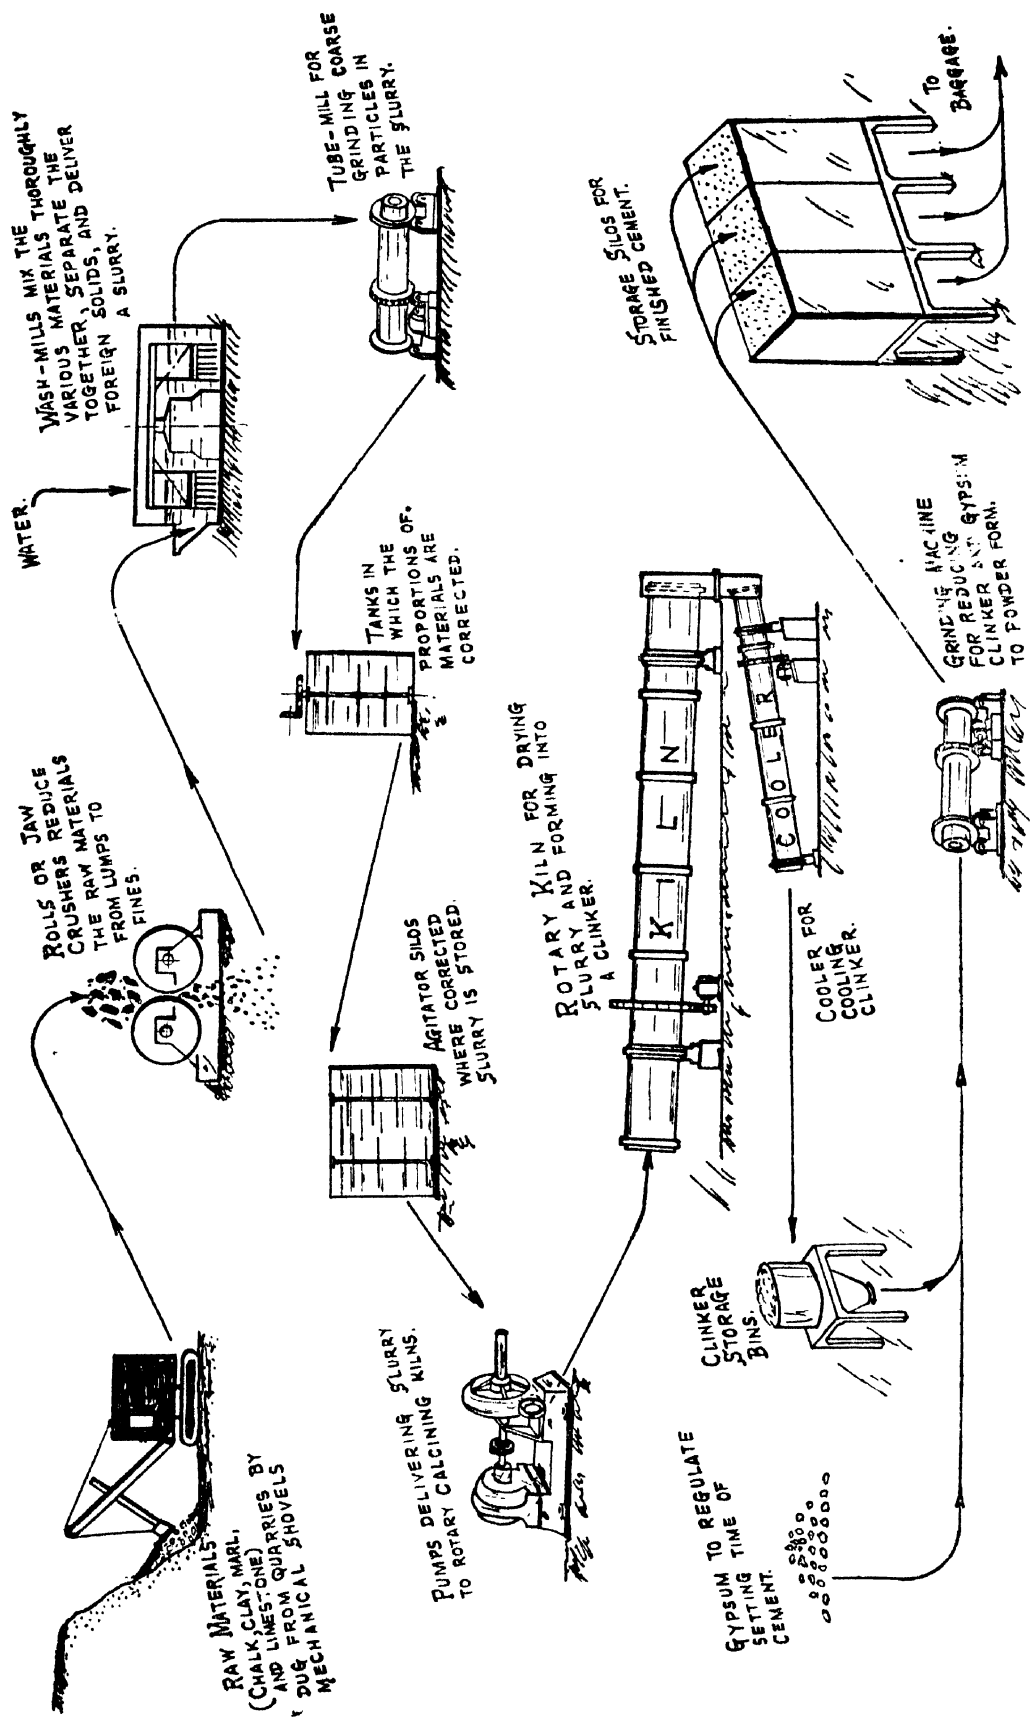 RAW MATERIALS
(CHALK, CLAY, MARL,
AND LIMESTONE)
DUG FROM QUARRIES BY
MECHANICAL SHOVELS
ROLLS OR JAW
CRUSHERS REDUCE
THE RAW MATERIALS
FROM LUMPS TO
FINES.
WATER.
WASH-MILLS MIX THE
VARIOUS MATERIALS THOROUGHLY
TOGETHER, SEPARATE THE
FOREIGN SOLIDS, AND DELIVER
A SLURRY.
TUBE-MILL FOR
GRINDING COARSE
PARTICLES IN
THE SLURRY.
TANKS IN
WHICH THE
PROPORTIONS OF
MATERIALS ARE
CORRECTED.
AGITATOR SILOS
WHERE CORRECTED
SLURRY IS STORED.
PUMPS DELIVERING SLURRY
TO ROTARY CALCINING KILNS.
ROTARY KILN FOR DRYING
SLURRY AND FORMING INTO
A CLINKER.
KILN
COOLER
COOLER FOR
COOLING
CLINKER.
CLINKER
STORAGE
BINS.
GYPSUM TO REGULATE
SETTING TIME OF
CEMENT.
GRINDING MACHINE
FOR REDUCING
CLINKER AND GYPSUM
TO POWDER FORM.
STORAGE SILOS FOR
FINISHED CEMENT.
TO
BAGGAGE.